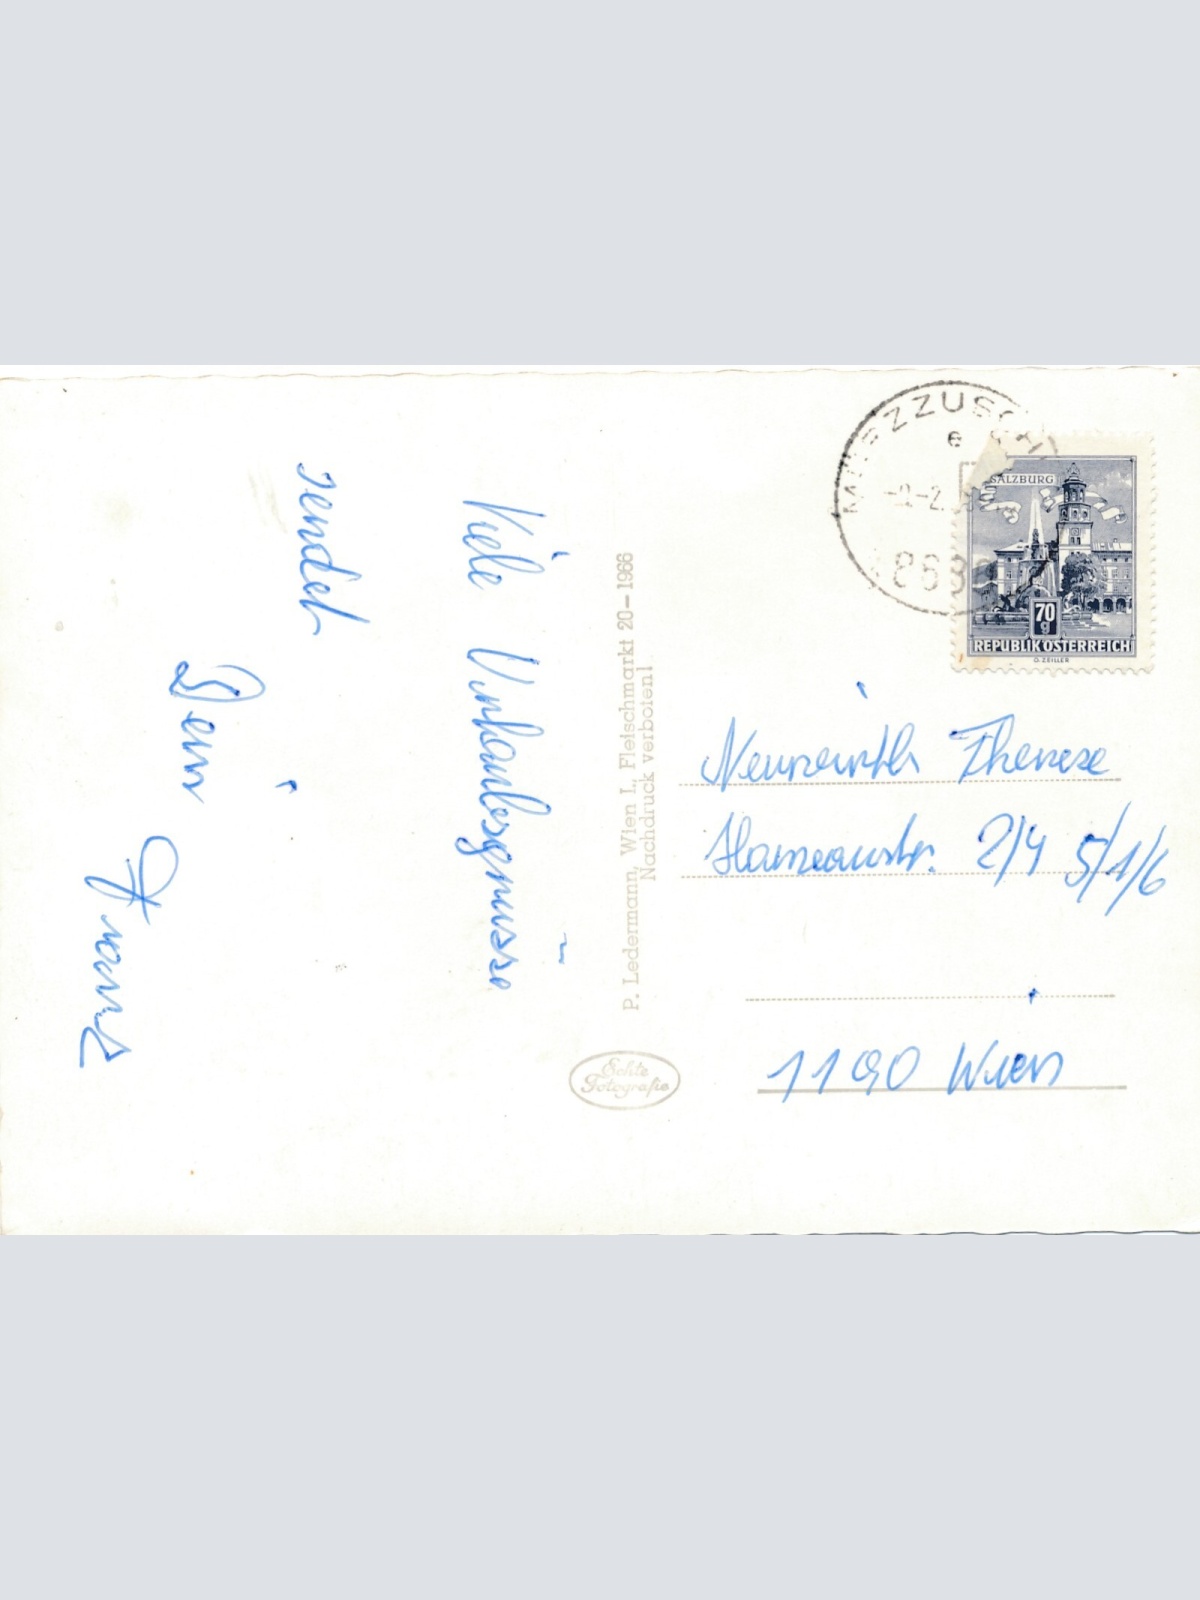 Viele Urlaubsgrüsse
sendet
Dein
Franz
P. Ledermann, Wien I., Fleischmarkt 20 – 1966
Nachdruck verboten!
Echte
Fotografie
MÜRZZUSCH
e
8680
SALZBURG
70
g
REPUBLIK ÖSTERREICH
O. ZEILLER
Neuwirth Therese
Hameaustr. 2/4 5/1/6
1190 Wien